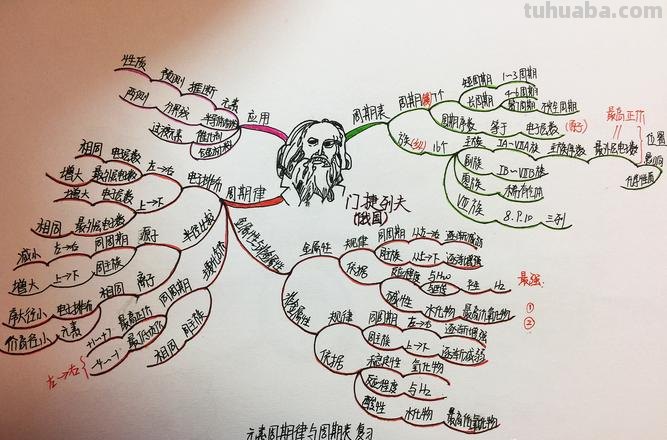 tuhuaba.com
性质
预测
推断
元素
两侧
分界线
半导体材料
过渡元素
催化剂
应用
周期表
周期(横)7个
短周期
1-3周期
长周期
4-6周期
第7周期
不完全周期
周期序数
等于
电子层数
(原子)
族(纵)16个
主族
ⅠA-ⅦA族
主族序数
最外层电子数
最高正价
=
位置
化学性质
副族
ⅠB-ⅦB族
稀有气体
Ⅷ族
8.9.10
三列
门捷列夫
(俄国)
周期律
电子排布
相同
电子层数
左→右
增大
最外层电子数
增大
电子层数
上→下
相同
最外层电子数
半径比较
减小
左→右
同周期
原子
增大
上→下
同主族
相同
离子
序大径小
电子排布
价高径小
元素
左→右
+1→+7
最高正价
-4→-1
最低负价
同周期
相同
同主族
金属性与非金属性
金属性
规律
同周期
从左→右
逐渐减弱
同主族
从上→下
逐渐增强
依据
反应程度
与H₂O
与酸
H₂
碱性
水化物
最高价氧化物
最强:
①
②
非金属性
规律
同周期
左→右
逐渐增强
同主族
上→下
逐渐减弱
依据
稳定性
氢化物
反应程度
与H₂
酸性
水化物
最高价氧化物
元素周期律与周期表复习